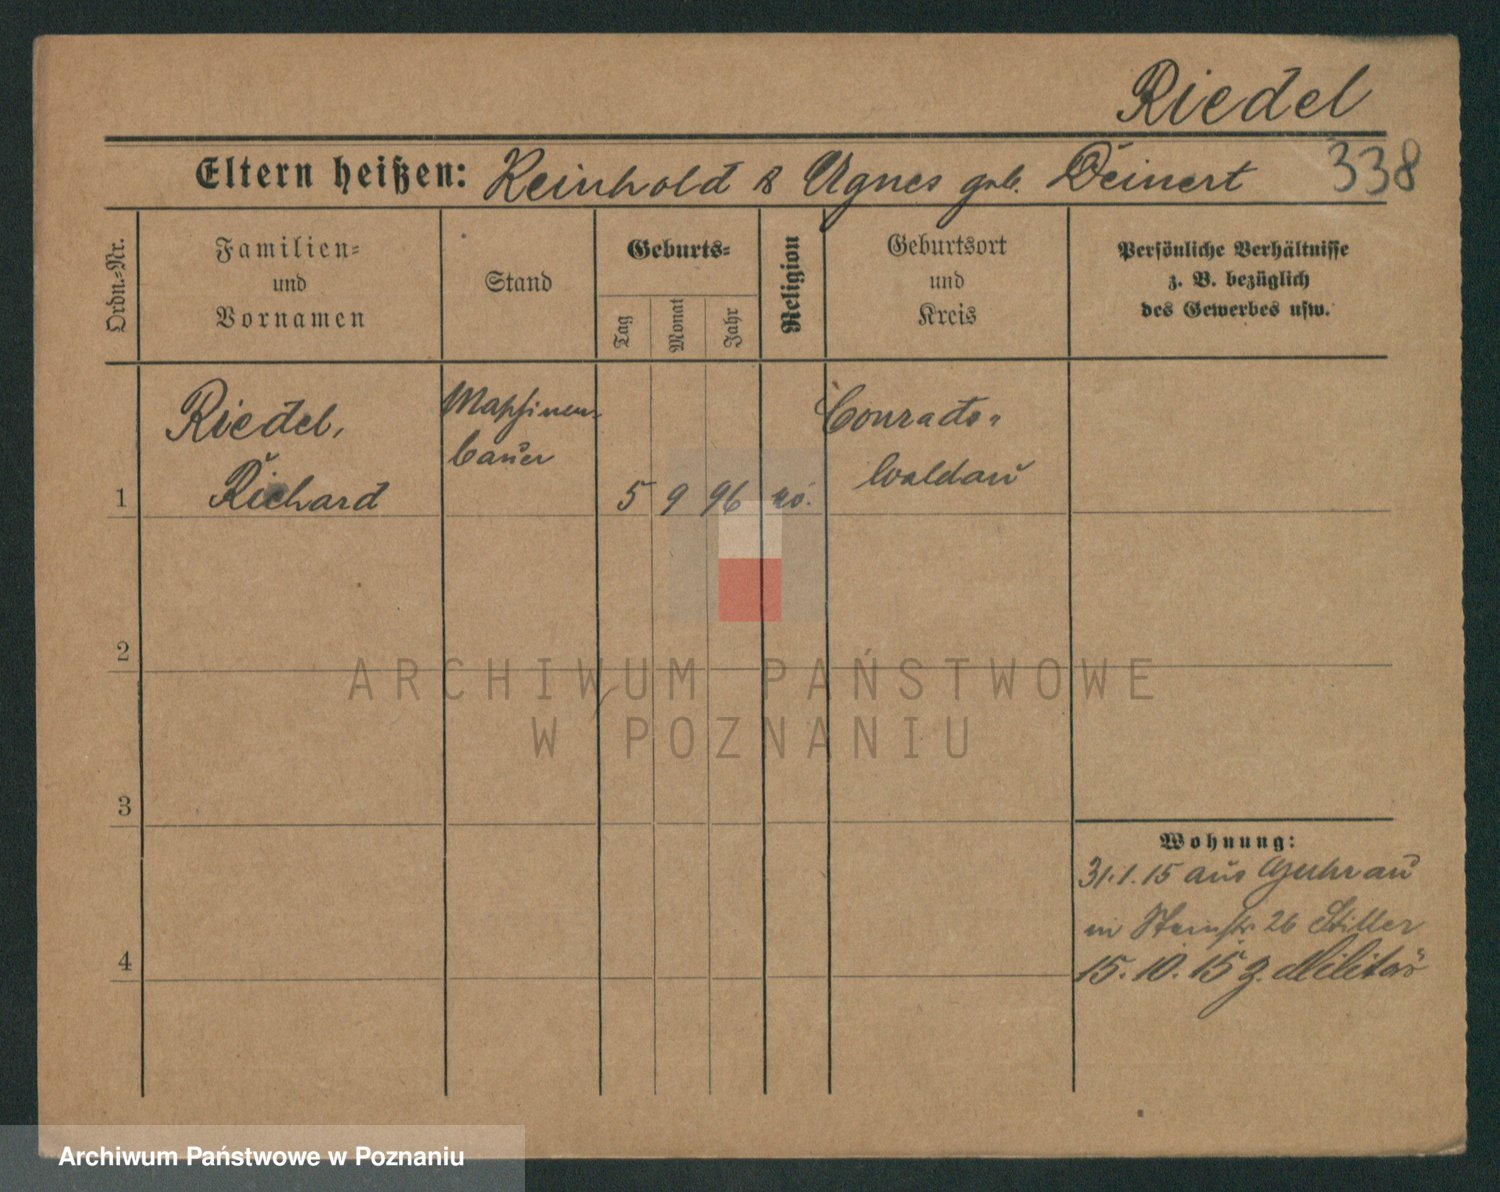 Riedel
338
Eltern heißen: Reinhold & Agnes geb. Deinert
Ordn.-Nr.
Familien-
und
Vornamen
Stand
Geburts-
Tag
Monat
Jahr
Religion
Geburtsort
und
Kreis
Persönliche Verhältnisse
z. B. bezüglich
des Gewerbes usw.
Riedel,
Richard
Maschinen-
bauer
1
5 9 96
Conrads-
waldau
2
ARCHIWUM PAŃSTWOWE
W POZNANIU
3
Wohnung:
31.1.15 aus Guhrau
in Steinstr. 26 Stiller
4
15.10.15 z. Militär
Archiwum Państwowe w Poznaniu